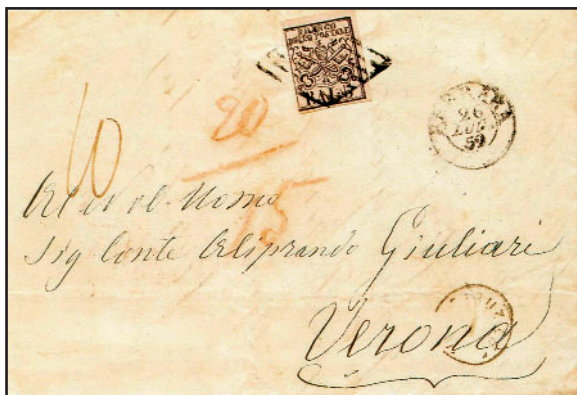 FRANCO
BOLLO POSTALE
BAJ
26
LUG
59
10
20
15
Al Nobil Uomo
Sig Conte Aliprando Giuliari
Verona